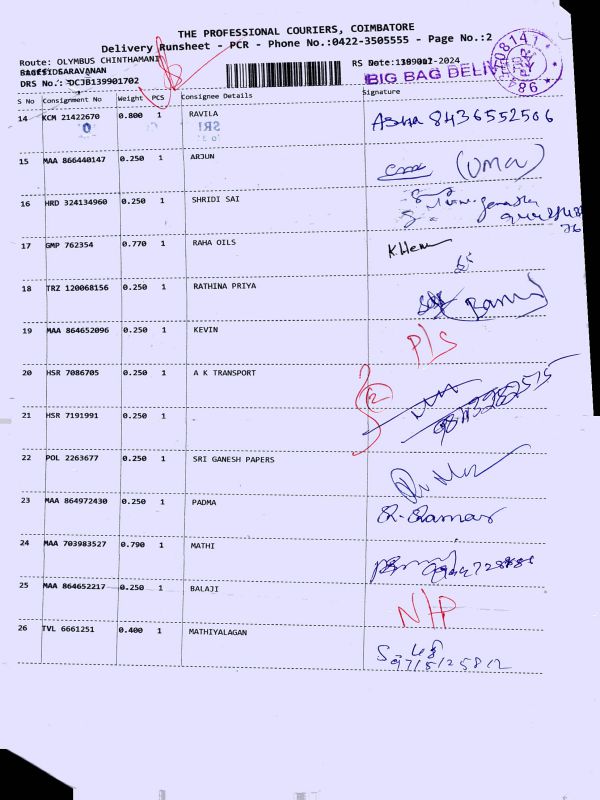 THE PROFESSIONAL COURIERS, COIMBATORE
Delivery Runsheet - PCR - Phone No.:0422-3505555 - Page No.:2
Route: OLYMBUS CHINTHAMANI
SARAVANAN
DRS No.: DCJB139901702
RS Date: 2024
BIG BAG DELIV
S No Consignment No Weight PCS Consignee Details Signature
14 KCM 21422670 0.800 1 RAVILA Asha 8436552506
15 MAA 866440147 0.250 1 ARJUN (UMA)
16 HRD 324134960 0.250 1 SHRIDI SAI
17 GMP 762354 0.770 1 RAHA OILS K.Hem
18 TRZ 120068156 0.250 1 RATHINA PRIYA
19 MAA 864652096 0.250 1 KEVIN P/S
20 HSR 7086705 0.250 1 A K TRANSPORT
21 HSR 7191991 0.250 1
22 POL 2263677 0.250 1 SRI GANESH PAPERS
23 MAA 864972430 0.250 1 PADMA
24 MAA 703983527 0.790 1 MATHI
25 MAA 864652217 0.250 1 BALAJI N/P
26 TVL 6661251 0.400 1 MATHIYALAGAN
9715125812